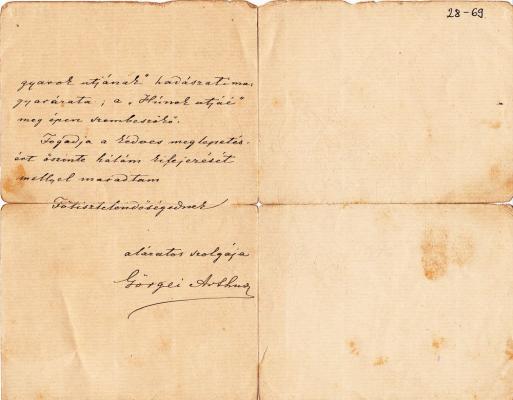 28-69
gyarok útjának" hadászati ma-
gyarázata; a „Húnok útjáé"
meg épen szembeszökő.
Fogadja a kedves meglepetés-
ért őszinte hálám kifejezését
mellyel maradtam
Főtisztelendőségednek
alázatos szolgája
Görgei Arthur